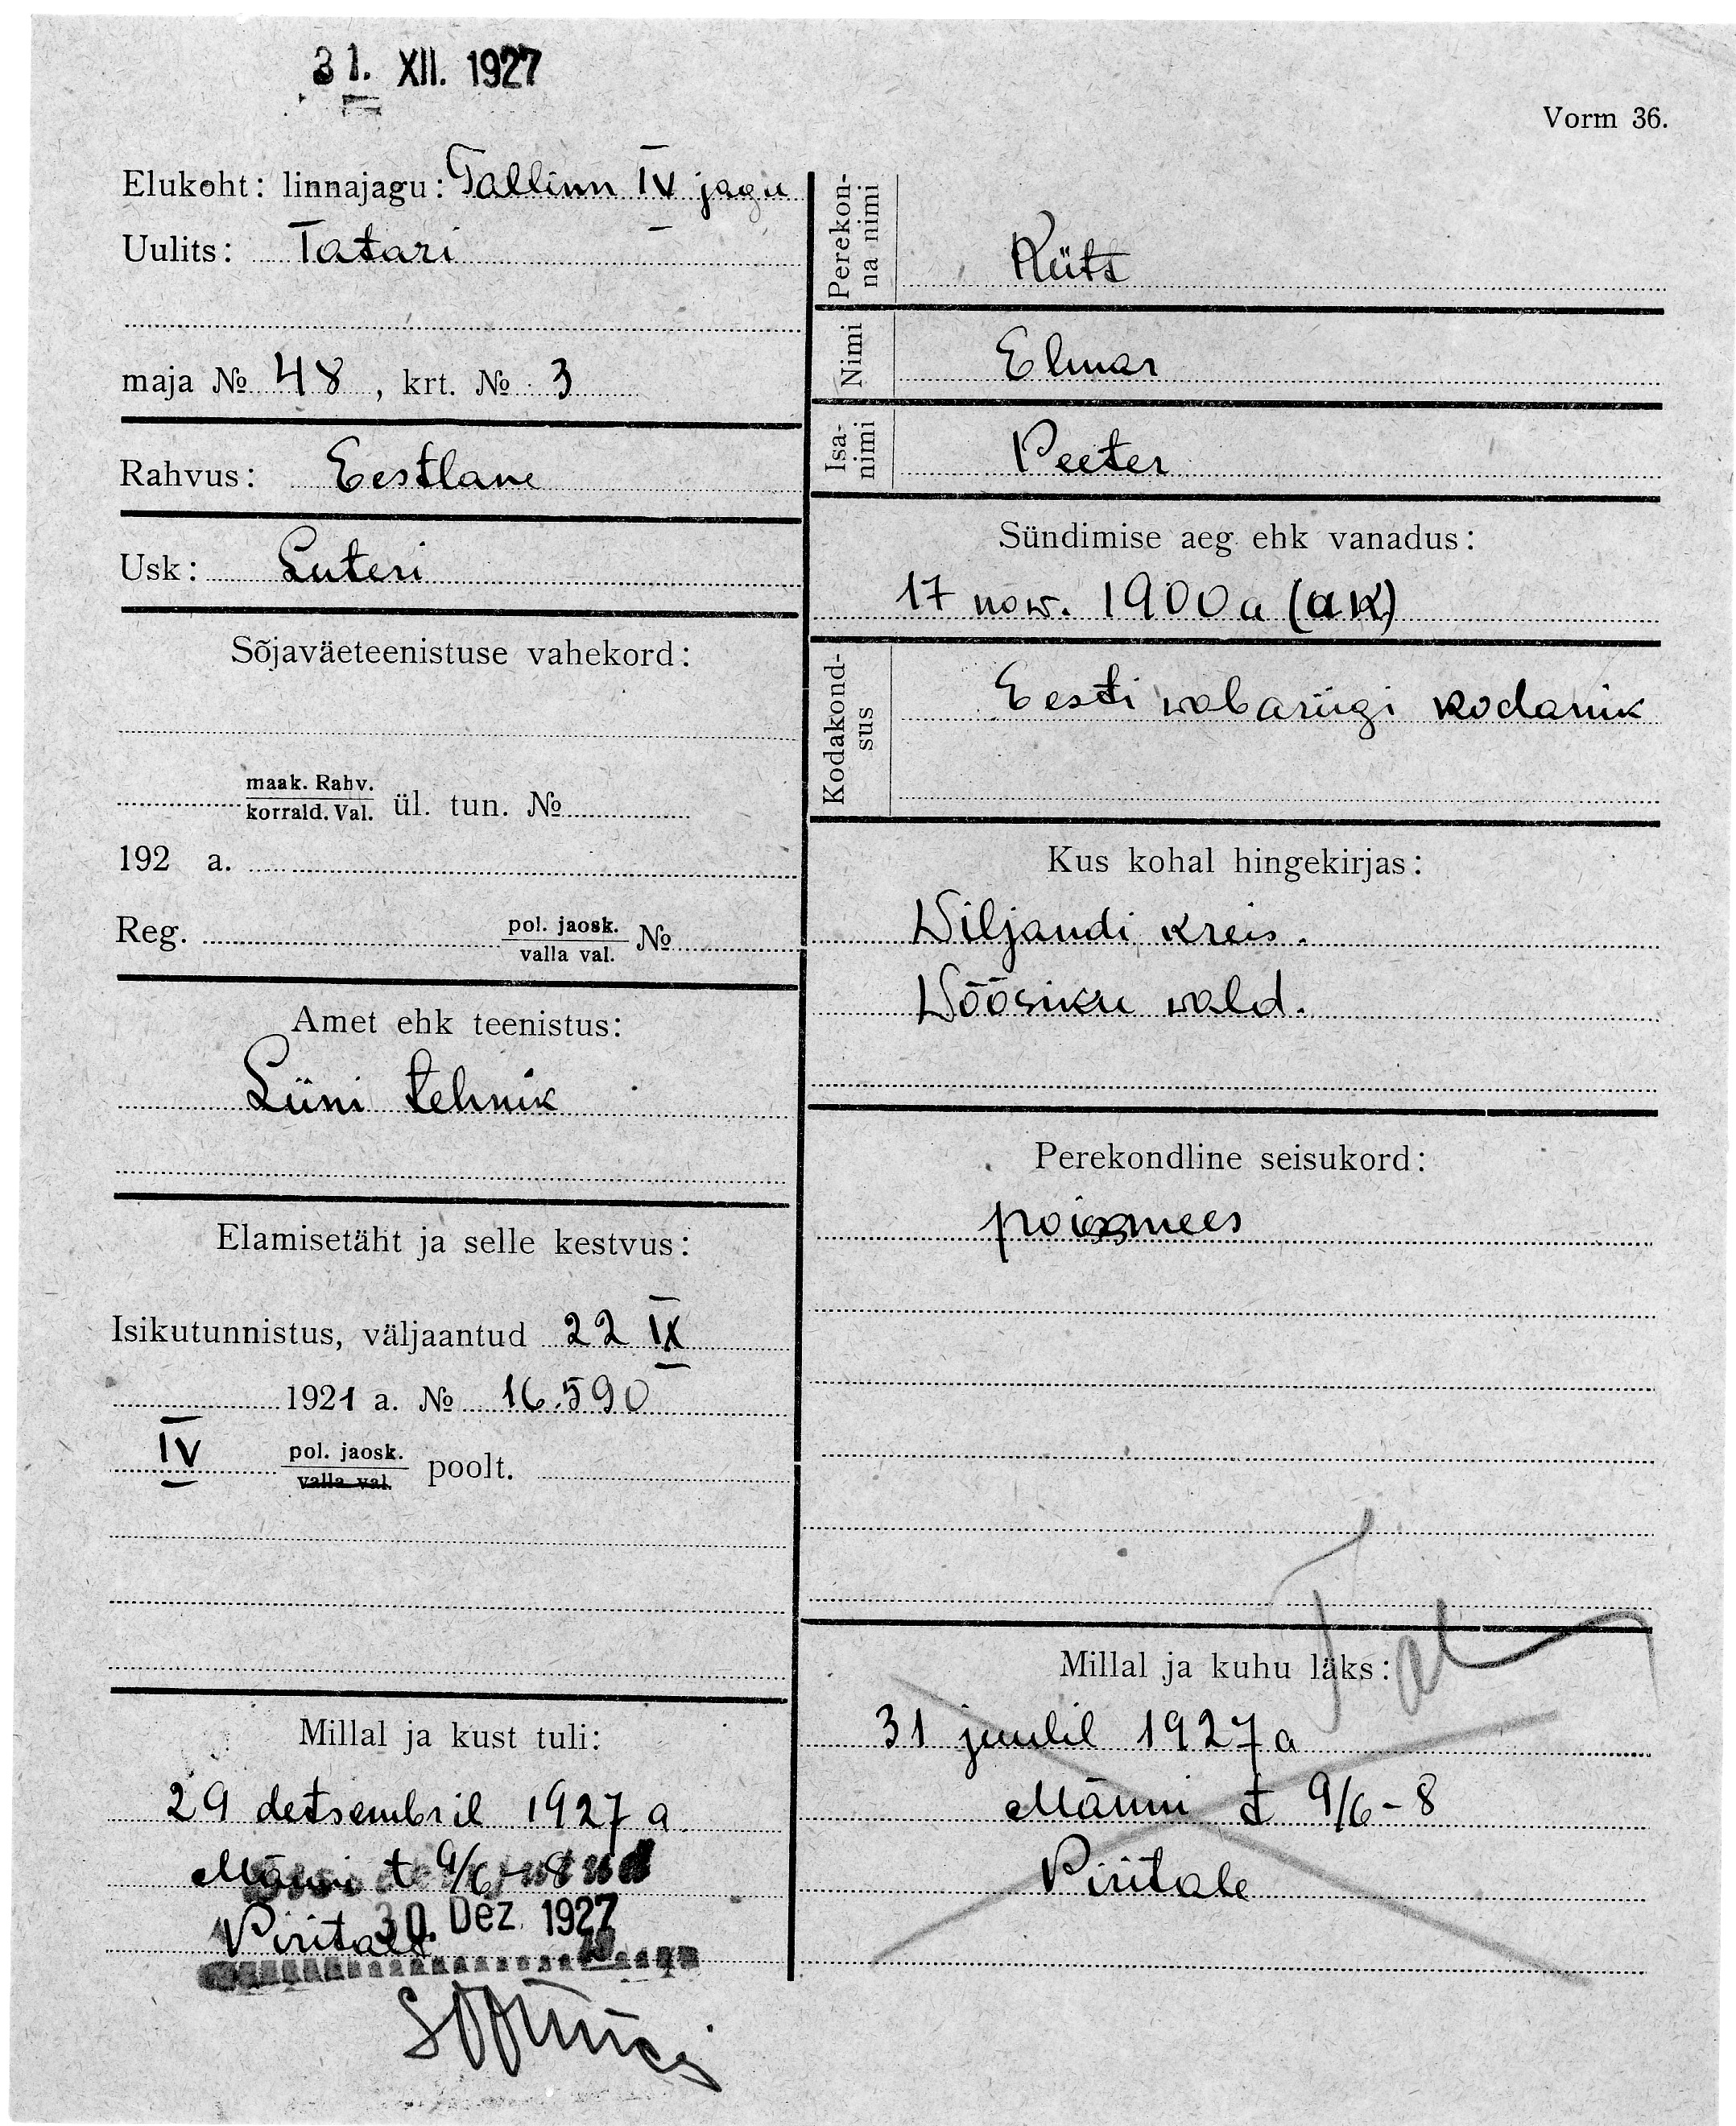 31. XII. 1927
Vorm 36.
Elukoht: linnajagu: Tallinn IV jagu
Uulits: Tatari
maja № 48, krt. № 3
Rahvus: Eestlane
Usk: Luteri
Sõjaväeteenistuse vahekord:
maak. Rahv.
korrald. Val. ül. tun. №
192 a.
Reg. pol. jaosk.
valla val. №
Amet ehk teenistus:
Liini tehnik
Elamisetäht ja selle kestvus:
Isikutunnistus, väljaantud 22 IX
1921 a. № 16.590
IV pol. jaosk.
valla val. poolt.
Millal ja kust tuli:
29 detsembril 1927 a.
Männi t 9/6-8
Piritalt
30. Dez. 1927
Perekon-
na nimi
Rüts
Nimi
Elmar
Isa-
nimi
Peeter
Sündimise aeg ehk vanadus:
17 now. 1900 a (a k)
Kodakond-
sus
Eesti wabariigi kodanik
Kus kohal hingekirjas:
Wiljandi kreis.
Wõõsiku wald.
Perekondline seisukord:
poissmees
Millal ja kuhu läks:
31 juulil 1927 a
Männi t 9/6-8
Piritale